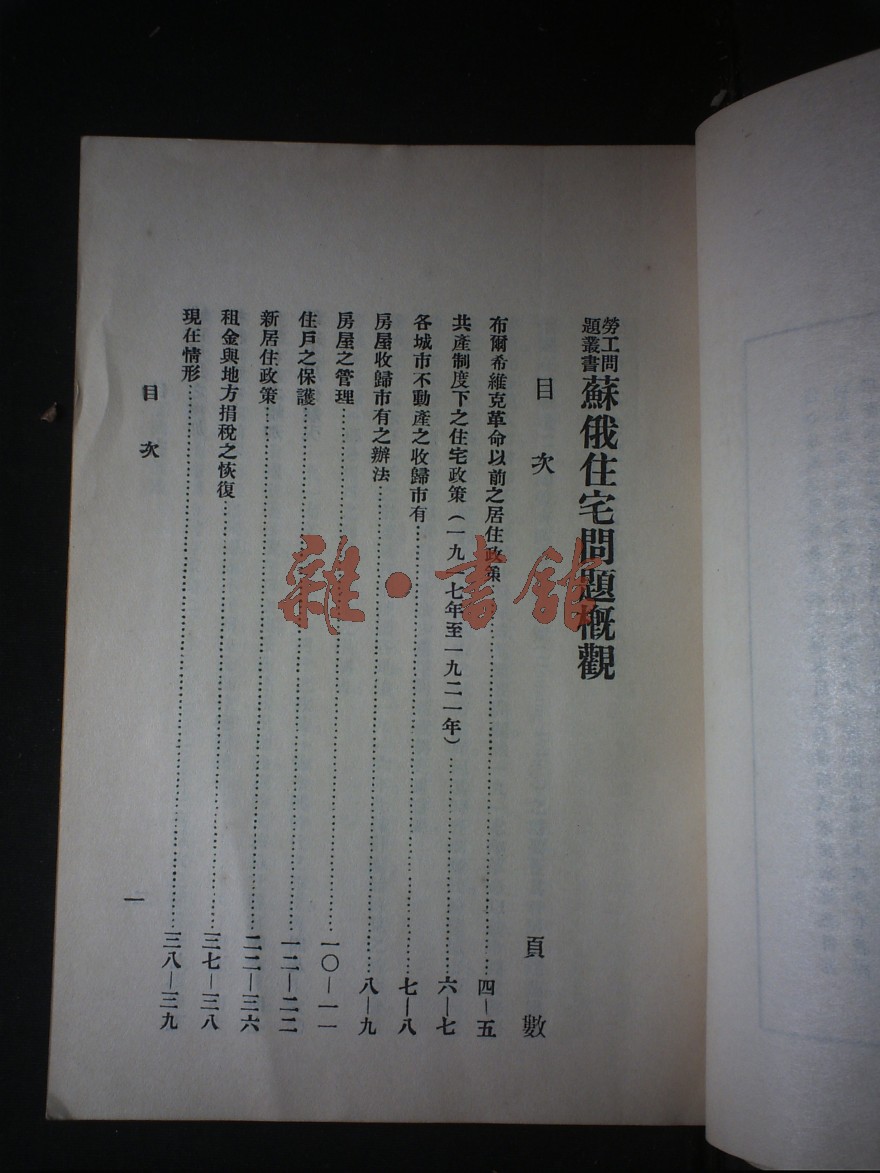 勞工問題叢書 蘇俄住宅問題概觀
目次 頁數
布爾希維克革命以前之居住政策……四—五
共產制度下之住宅政策（一九一七年至一九二一年）……六—七
各城市不動產之收歸市有……七—八
房屋收歸市有之辦法……八—九
房屋之管理……一〇—一一
住戶之保護……一二—二二
新居住政策……二二—三六
租金與地方捐稅之恢復……三七—三八
現在情形……三八—三九
目次 一
雜·書館